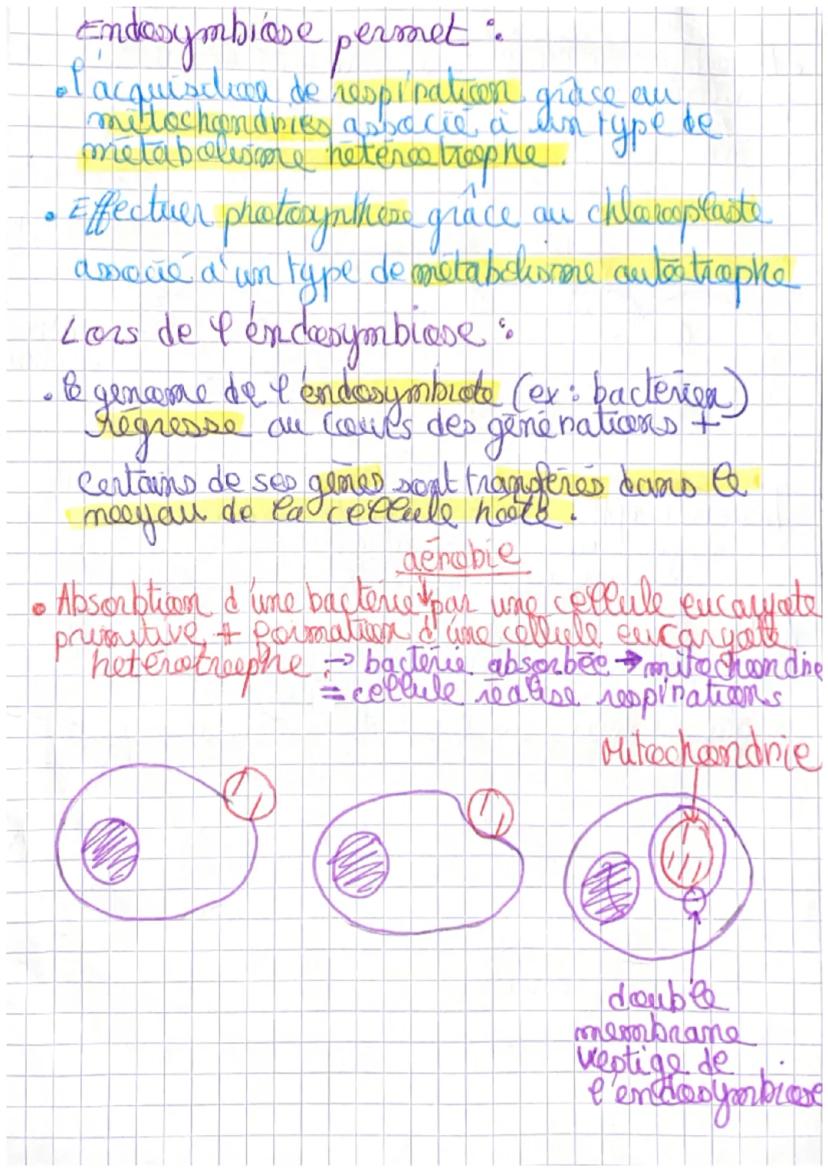 Endosymbiose permet :
• l'acquisition de respiration grâce au
mitochondries associé à un type de
métabolisme hétérotrophe.
• Effectuer photosynthèse grâce au chloroplaste
associé à un type de métabolisme autotrophe
Lors de l'endosymbiose :
• le génome de l'endosymbiote (ex : bactérien)
régresse au cours des générations +
certains de ses gènes sont transférés dans le
noyau de la cellule hôte.
aérobie
• Absorbtion d'une bactérie ↓ par une cellule eucaryote
primitive + formation d'une cellule eucaryote
hétérotrophe. → bactérie absorbée → mitochondrie
= cellule réalise respirations
Mitochondrie
double
membrane
vestige de
l'endosymbiose